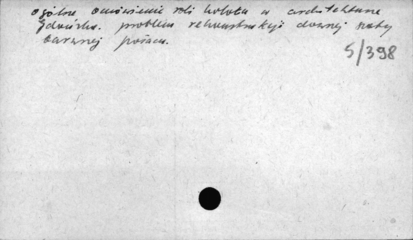 ogólne omówienie roli koloru w architekturze
Gdańska. problem rekonstrukcji dawnej szaty
barwnej
5/398